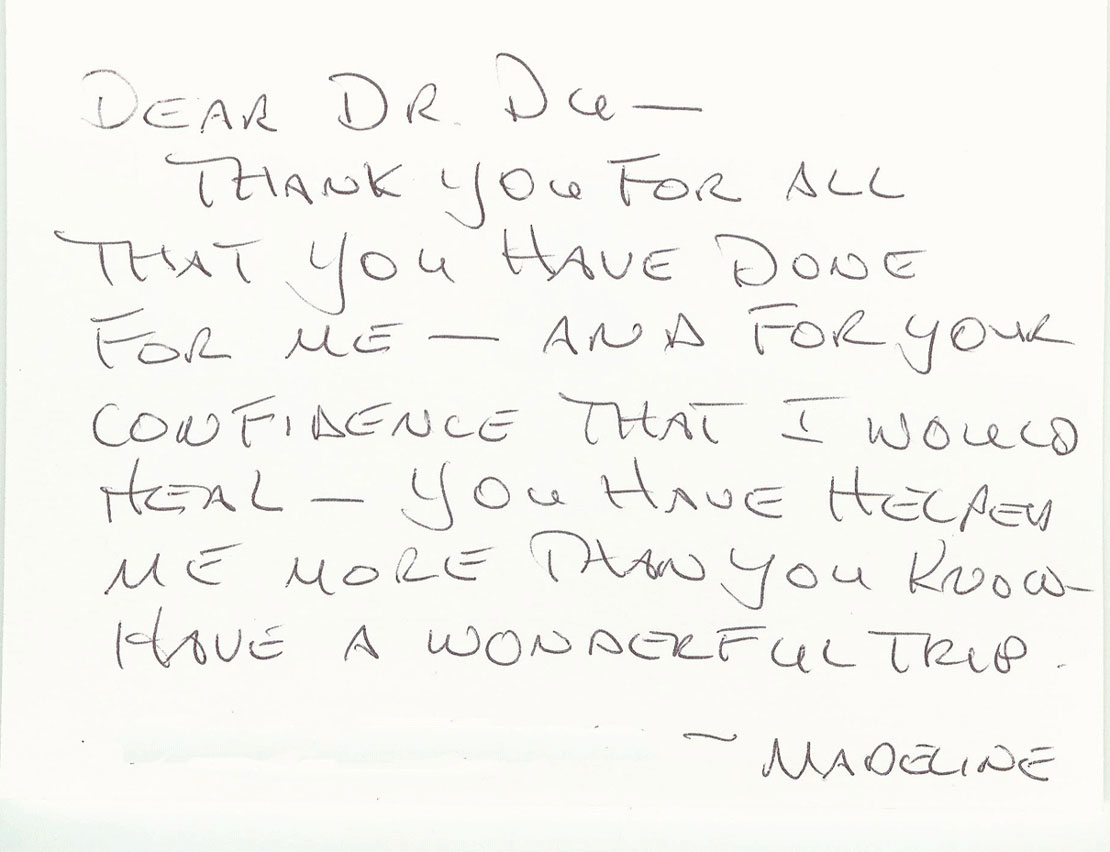 DEAR DR. DU—
THANK YOU FOR ALL
THAT YOU HAVE DONE
FOR ME — AND FOR YOUR
CONFIDENCE THAT I WOULD
HEAL — YOU HAVE HELPED
ME MORE THAN YOU KNOW-
HAVE A WONDERFUL TRIP.
~ MADELINE